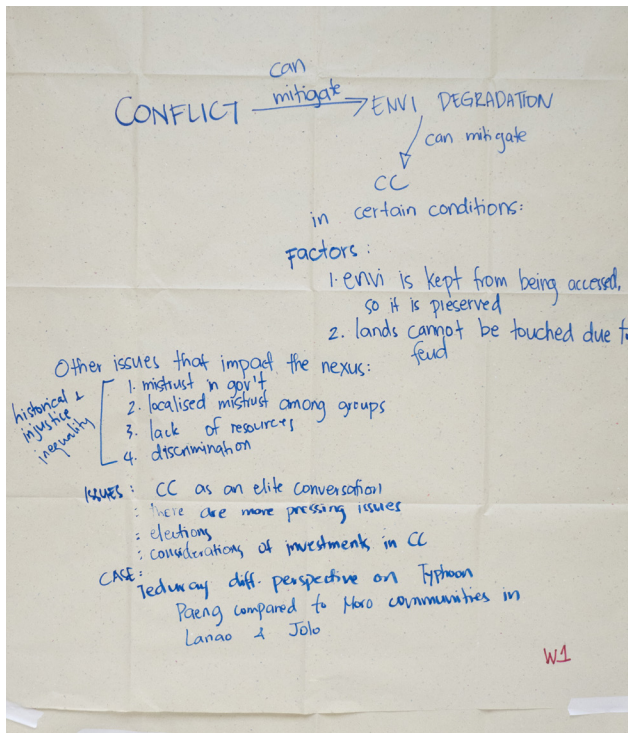 can
mitigate
CONFLICT → ENVI DEGRADATION
can mitigate
CC
in certain conditions:
Factors:
1. envi is kept from being accessed,
so it is preserved
2. lands cannot be touched due to
feud
Other issues that impact the nexus:
historical &
injustice
inequality
1. mistrust in gov't
2. localised mistrust among groups
3. lack of resources
4. discrimination
ISSUES: CC as an elite conversation
: there are more pressing issues
: elections
: considerations of investments in CC
CASE:
Teduray diff. perspective on Typhoon
Paeng compared to Moro communities in
Lanao & Jolo
W1